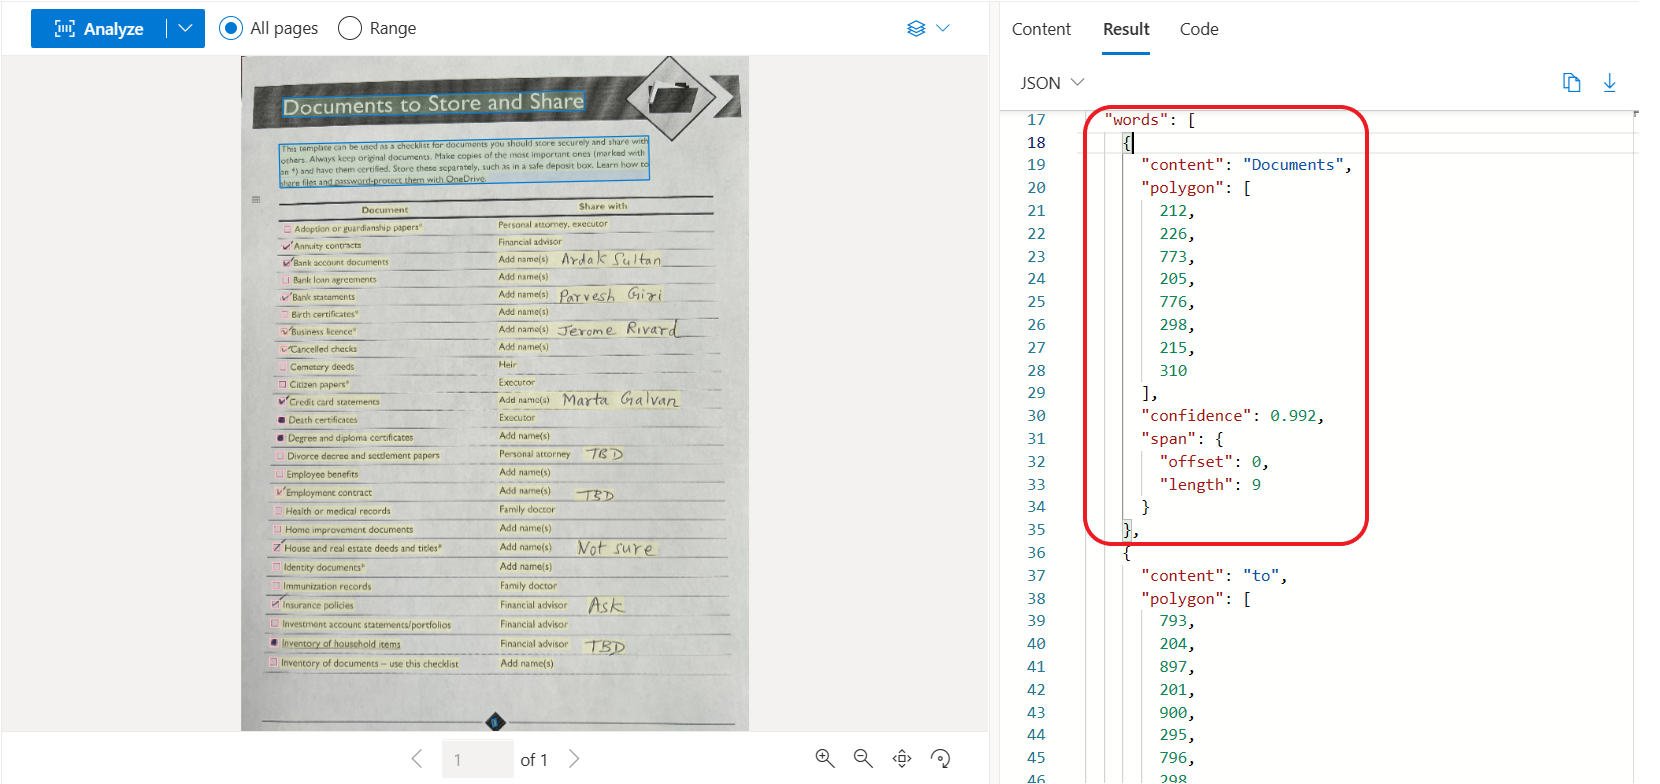 Analyze
All pages
Range
Content
Result
Code
JSON
Documents to Store and Share
This template can be used as a checklist for documents you should store securely and share with
others. Always keep original documents. Make copies of the most important ones (marked with
an *) and have them certified. Store these separately, such as in a safe deposit box. Learn how to
share files and password-protect them with OneDrive.
Document Share with
Adoption or guardianship papers* Personal attorney, executor
Annuity contracts Financial advisor
Bank account documents Add name(s) Ardak Sultan
Bank loan agreements Add name(s)
Bank statements Add name(s) Parvesh Giri
Birth certificates* Add name(s)
Business licence* Add name(s) Jerome Rivard
Cancelled checks Add name(s)
Cemetery deeds Heir
Citizen papers* Executor
Credit card statements Add name(s) Marta Galvan
Death certificates Executor
Degree and diploma certificates Add name(s)
Divorce decree and settlement papers Personal attorney TBD
Employee benefits Add name(s)
Employment contract Add name(s) TBD
Health or medical records Family doctor
Home improvement documents Add name(s)
House and real estate deeds and titles* Add name(s) Not sure
Identity documents* Add name(s)
Immunization records Family doctor
Insurance policies Financial advisor Ask
Investment account statements/portfolios Financial advisor
Inventory of household items Financial advisor TBD
Inventory of documents – use this checklist Add name(s)
1 of 1
17 "words": [
18 {
19 "content": "Documents",
20 "polygon": [
21 212,
22 226,
23 773,
24 205,
25 776,
26 298,
27 215,
28 310
29 ],
30 "confidence": 0.992,
31 "span": {
32 "offset": 0,
33 "length": 9
34 }
35 },
36 {
37 "content": "to",
38 "polygon": [
39 793,
40 204,
41 897,
42 201,
43 900,
44 295,
45 796,
46 298